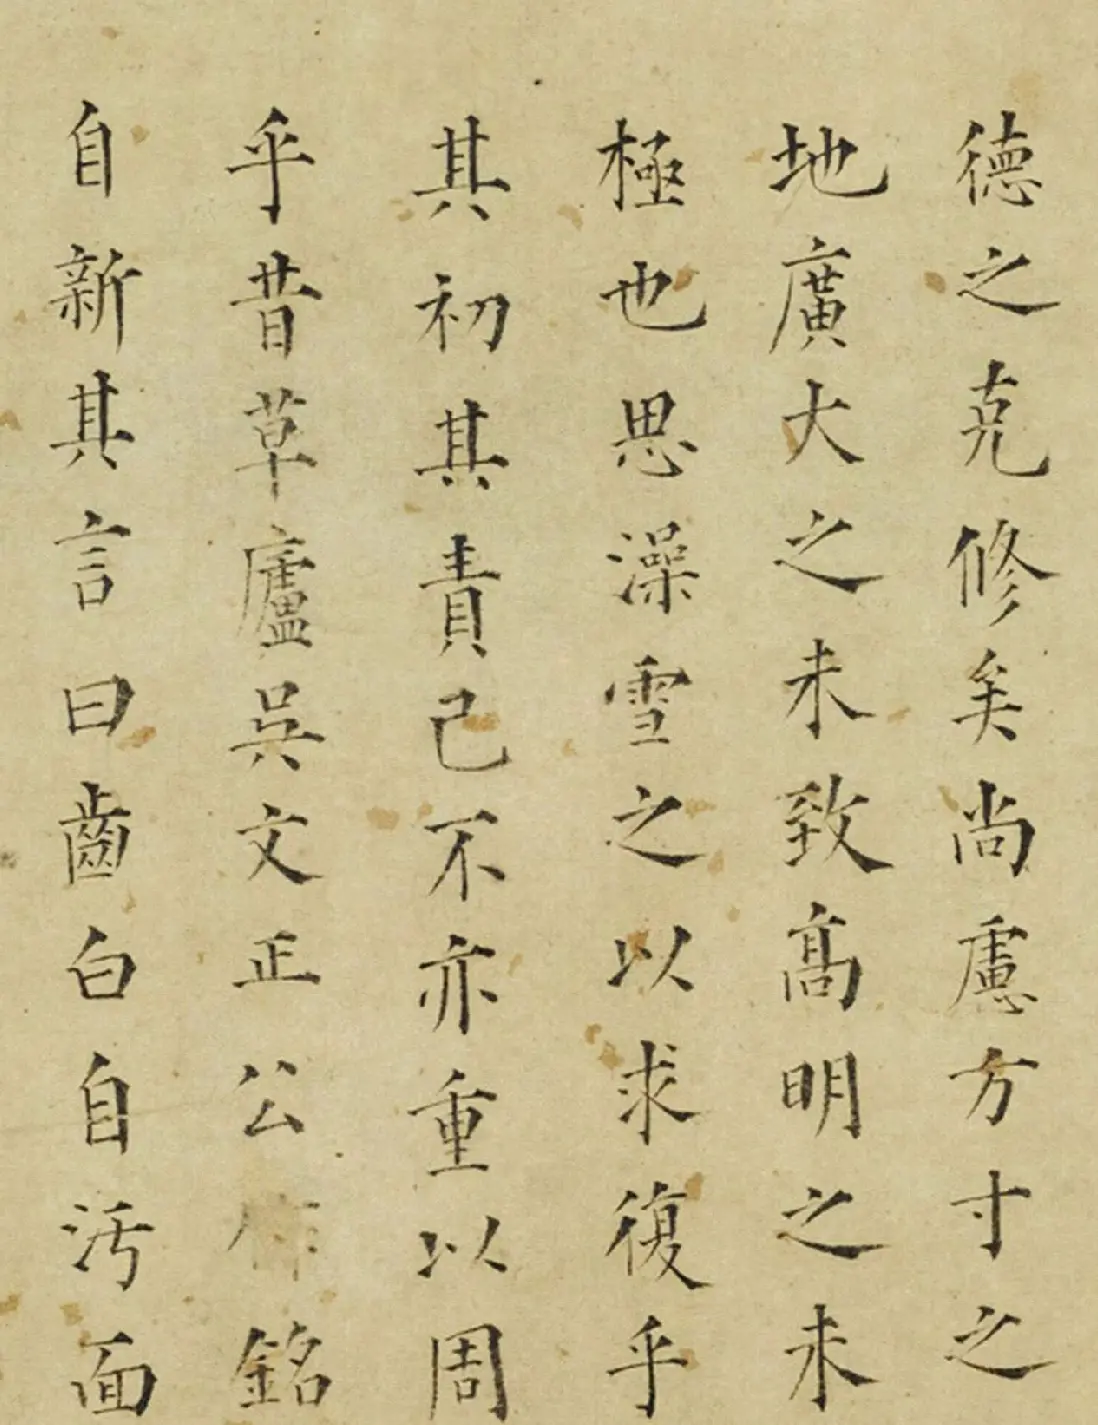 德之克修矣尚慮方寸之
地廣大之未致高明之未
極也思澡雪之以求復乎
其初其責己不亦重以周
乎昔草廬吳文正公作銘
自新其言曰齒白自汚面